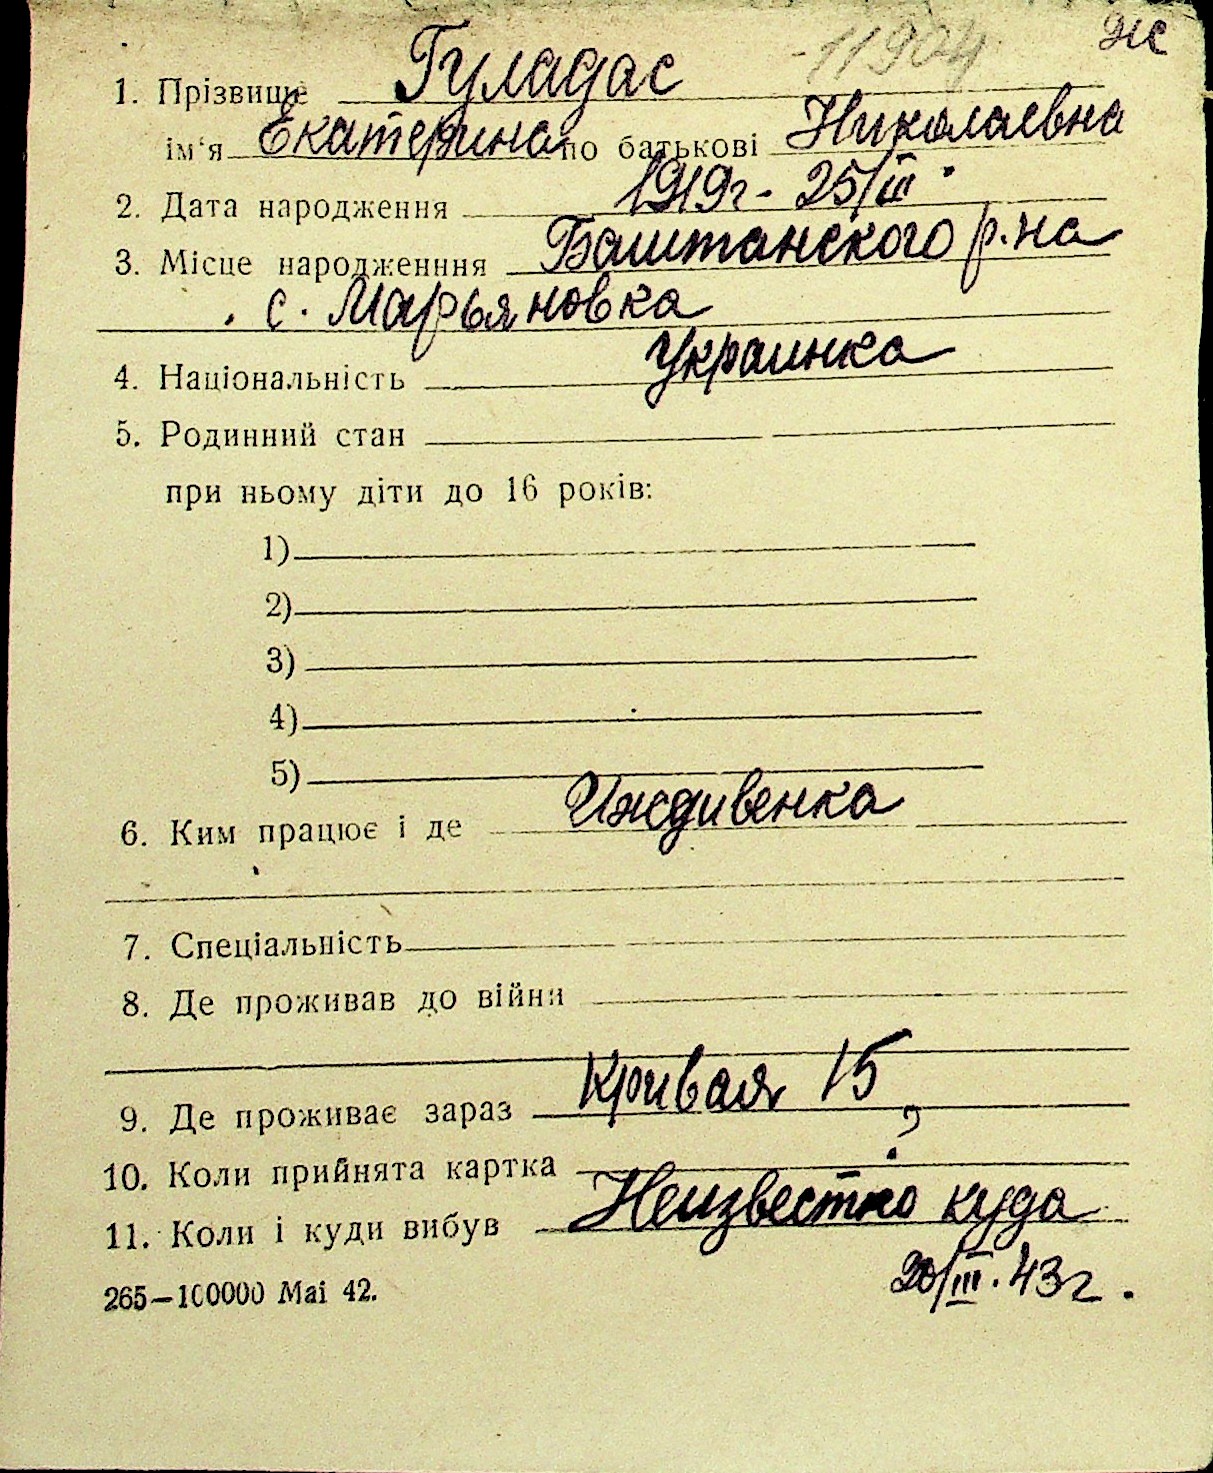 11904 Ж
1. Прізвище Гуладас
ім'я Екатерина по батькові Николаевна
2. Дата народження 1919 г - 25/III
3. Місце народженння Баштанского р-на
с. Марьяновка
4. Національність Украинка
5. Родинний стан
при ньому діти до 16 років:
1)
2)
3)
4)
5)
6. Ким працює і де Иждивенка
7. Спеціальність
8. Де проживав до війни
9. Де проживає зараз Кривая 15,
10. Коли прийнята картка
11. Коли і куди вибув Неизвестно куда
265—100000 Mai 42. 20/III. 43 г.